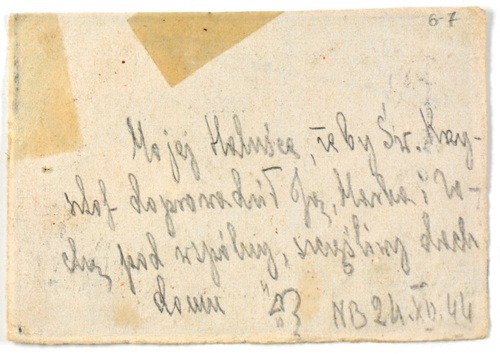 6-7
Mojej Halusce, żeby Św. Krzy-
sztof doprowadził Ją, Marka i
pod wspólny, szczęśliwy dach
domu
NB 24.XII.44